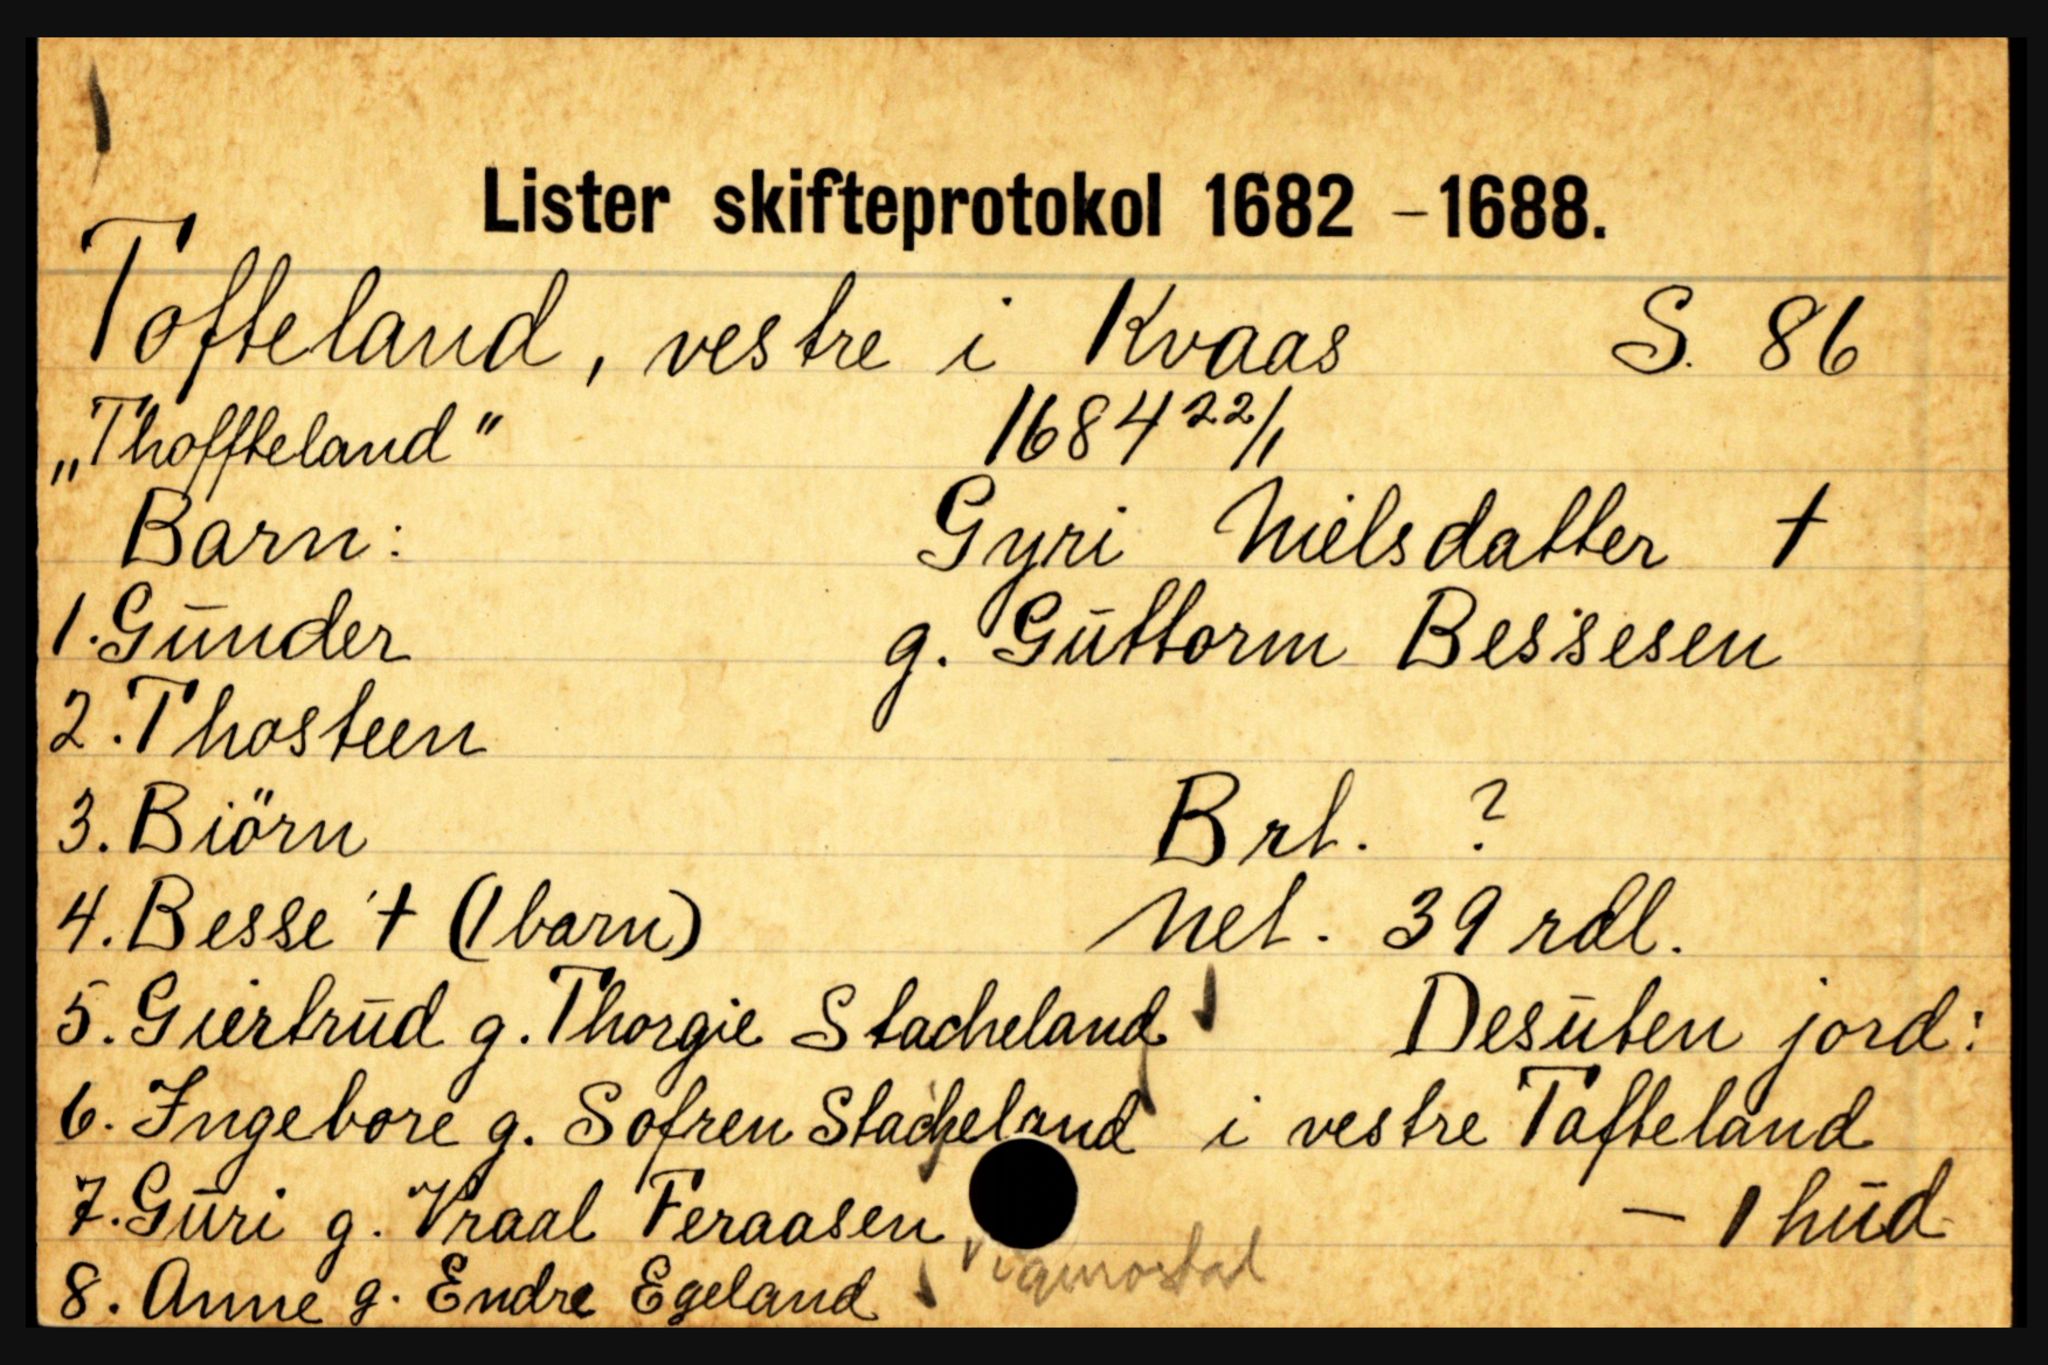 Lister skifteprotokol 1682 - 1688.
Tofteland, vestre i Kvaas S. 86
„Thoffteland" 1684 22/1
Barn: Gyri Nielsdatter †
1. Gunder g. Guttorm Bessesen
2. Thosteen
3. Biörn Brt. ?
4. Besse † (1 barn) Net. 39 rdl.
5. Giertrud g. Thorgie Stacheland Desuten jord:
6. Ingebore g. Sofren Stacheland i vestre Tofteland
7. Guri g. Vraal Feraasen — 1 hud
Vigmostad
8. Anne g. Endre Egeland